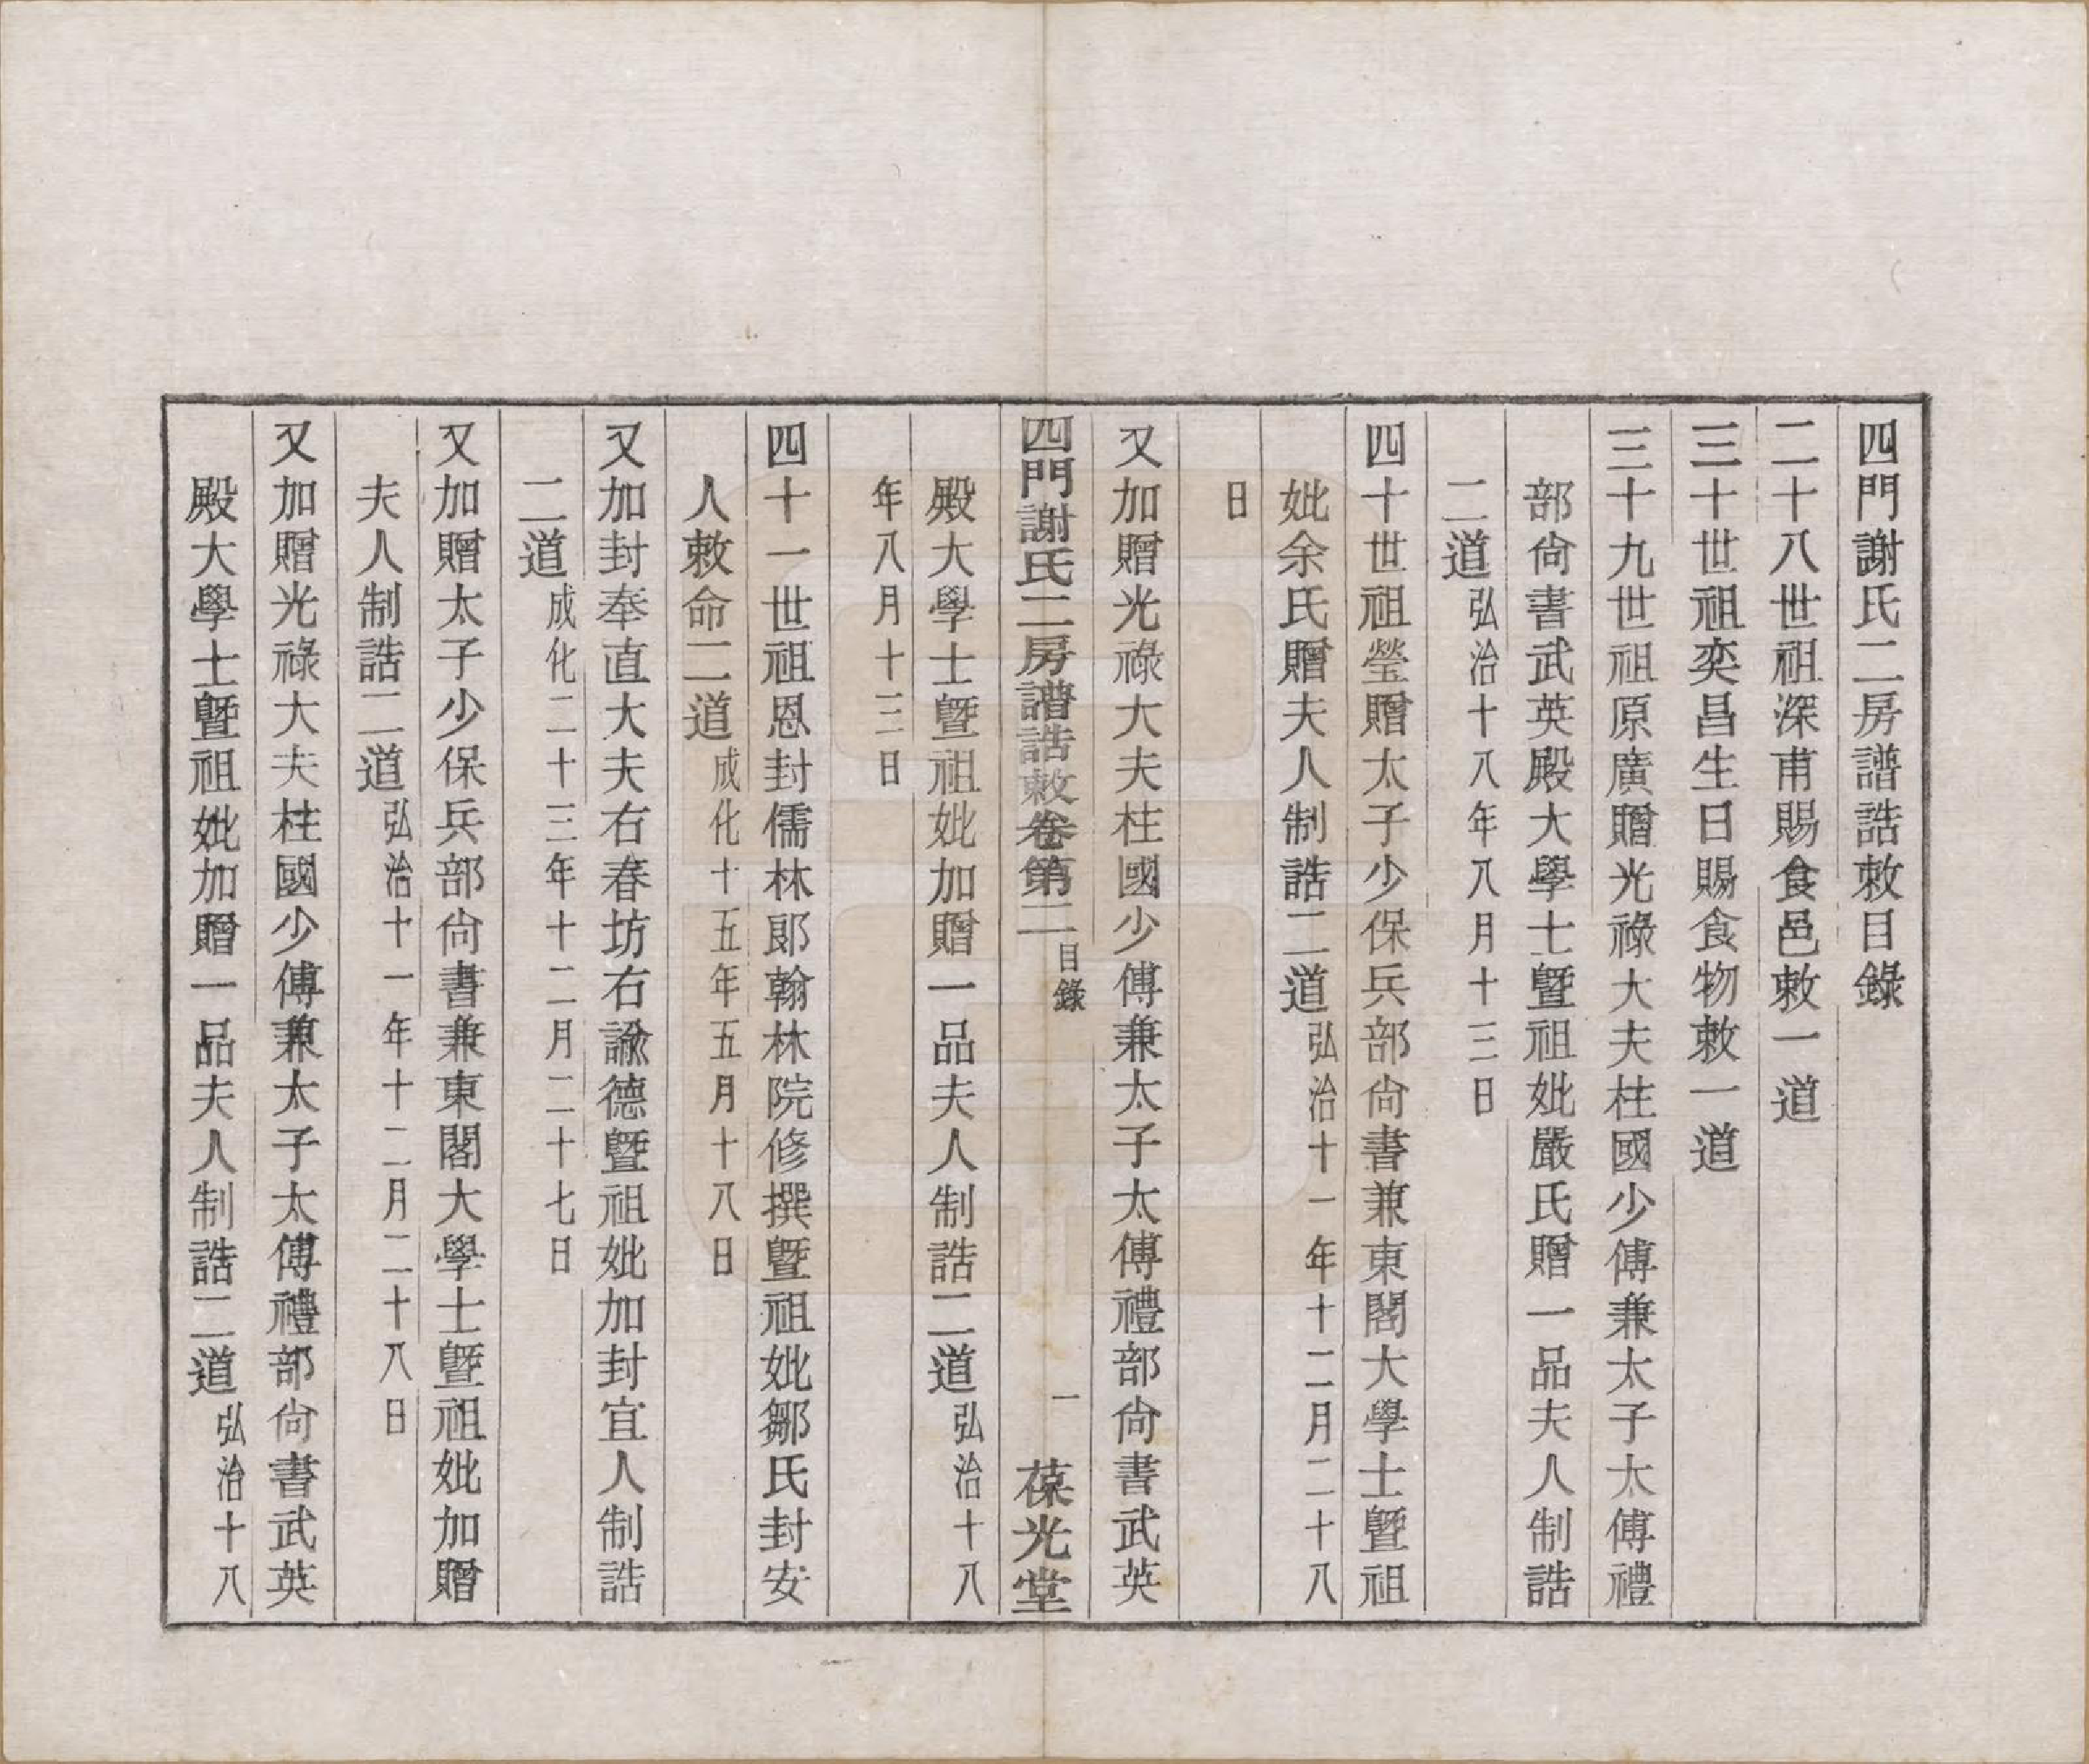 四門謝氏二房譜誥敕目錄
二十八世祖深甫賜食邑敕一道
三十世祖奕昌生日賜食物敕一道
三十九世祖原廣贈光祿大夫柱國少傅兼太子太傅禮
部尙書武英殿大學士曁祖妣嚴氏贈一品夫人制誥
二道弘治十八年八月十三日
四十世祖瑩贈太子少保兵部尙書兼東閣大學士曁祖
妣余氏贈夫人制誥二道弘治十一年十二月二十八
日
又加贈光祿大夫柱國少傅兼太子太傅禮部尙書武英
四門謝氏二房譜誥敕卷第二 目錄 一 葆光堂
殿大學士曁祖妣加贈一品夫人制誥二道弘治十八
年八月十三日
四十一世祖恩封儒林郞翰林院修撰曁祖妣鄒氏封安
人敕命二道成化十五年五月十八日
又加封奉直大夫右春坊右諭德曁祖妣加封宜人制誥
二道成化二十三年十二月二十七日
又加贈太子少保兵部尙書兼東閣大學士曁祖妣加贈
夫人制誥二道弘治十一年十二月二十八日
又加贈光祿大夫柱國少傅兼太子太傅禮部尙書武英
殿大學士曁祖妣加贈一品夫人制誥二道弘治十八